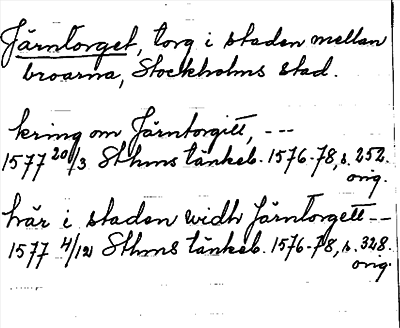 Järntorget, torg i staden mellan
broarna, Stockholms stad.
kring om Järntorgitt, ---
1577 20/3 Sthms tänkeb. 1576-78, s. 252.
orig.
här i staden widh Järntorgett --
1577 4/12 Sthms tänkeb. 1576-78, s. 328.
orig.